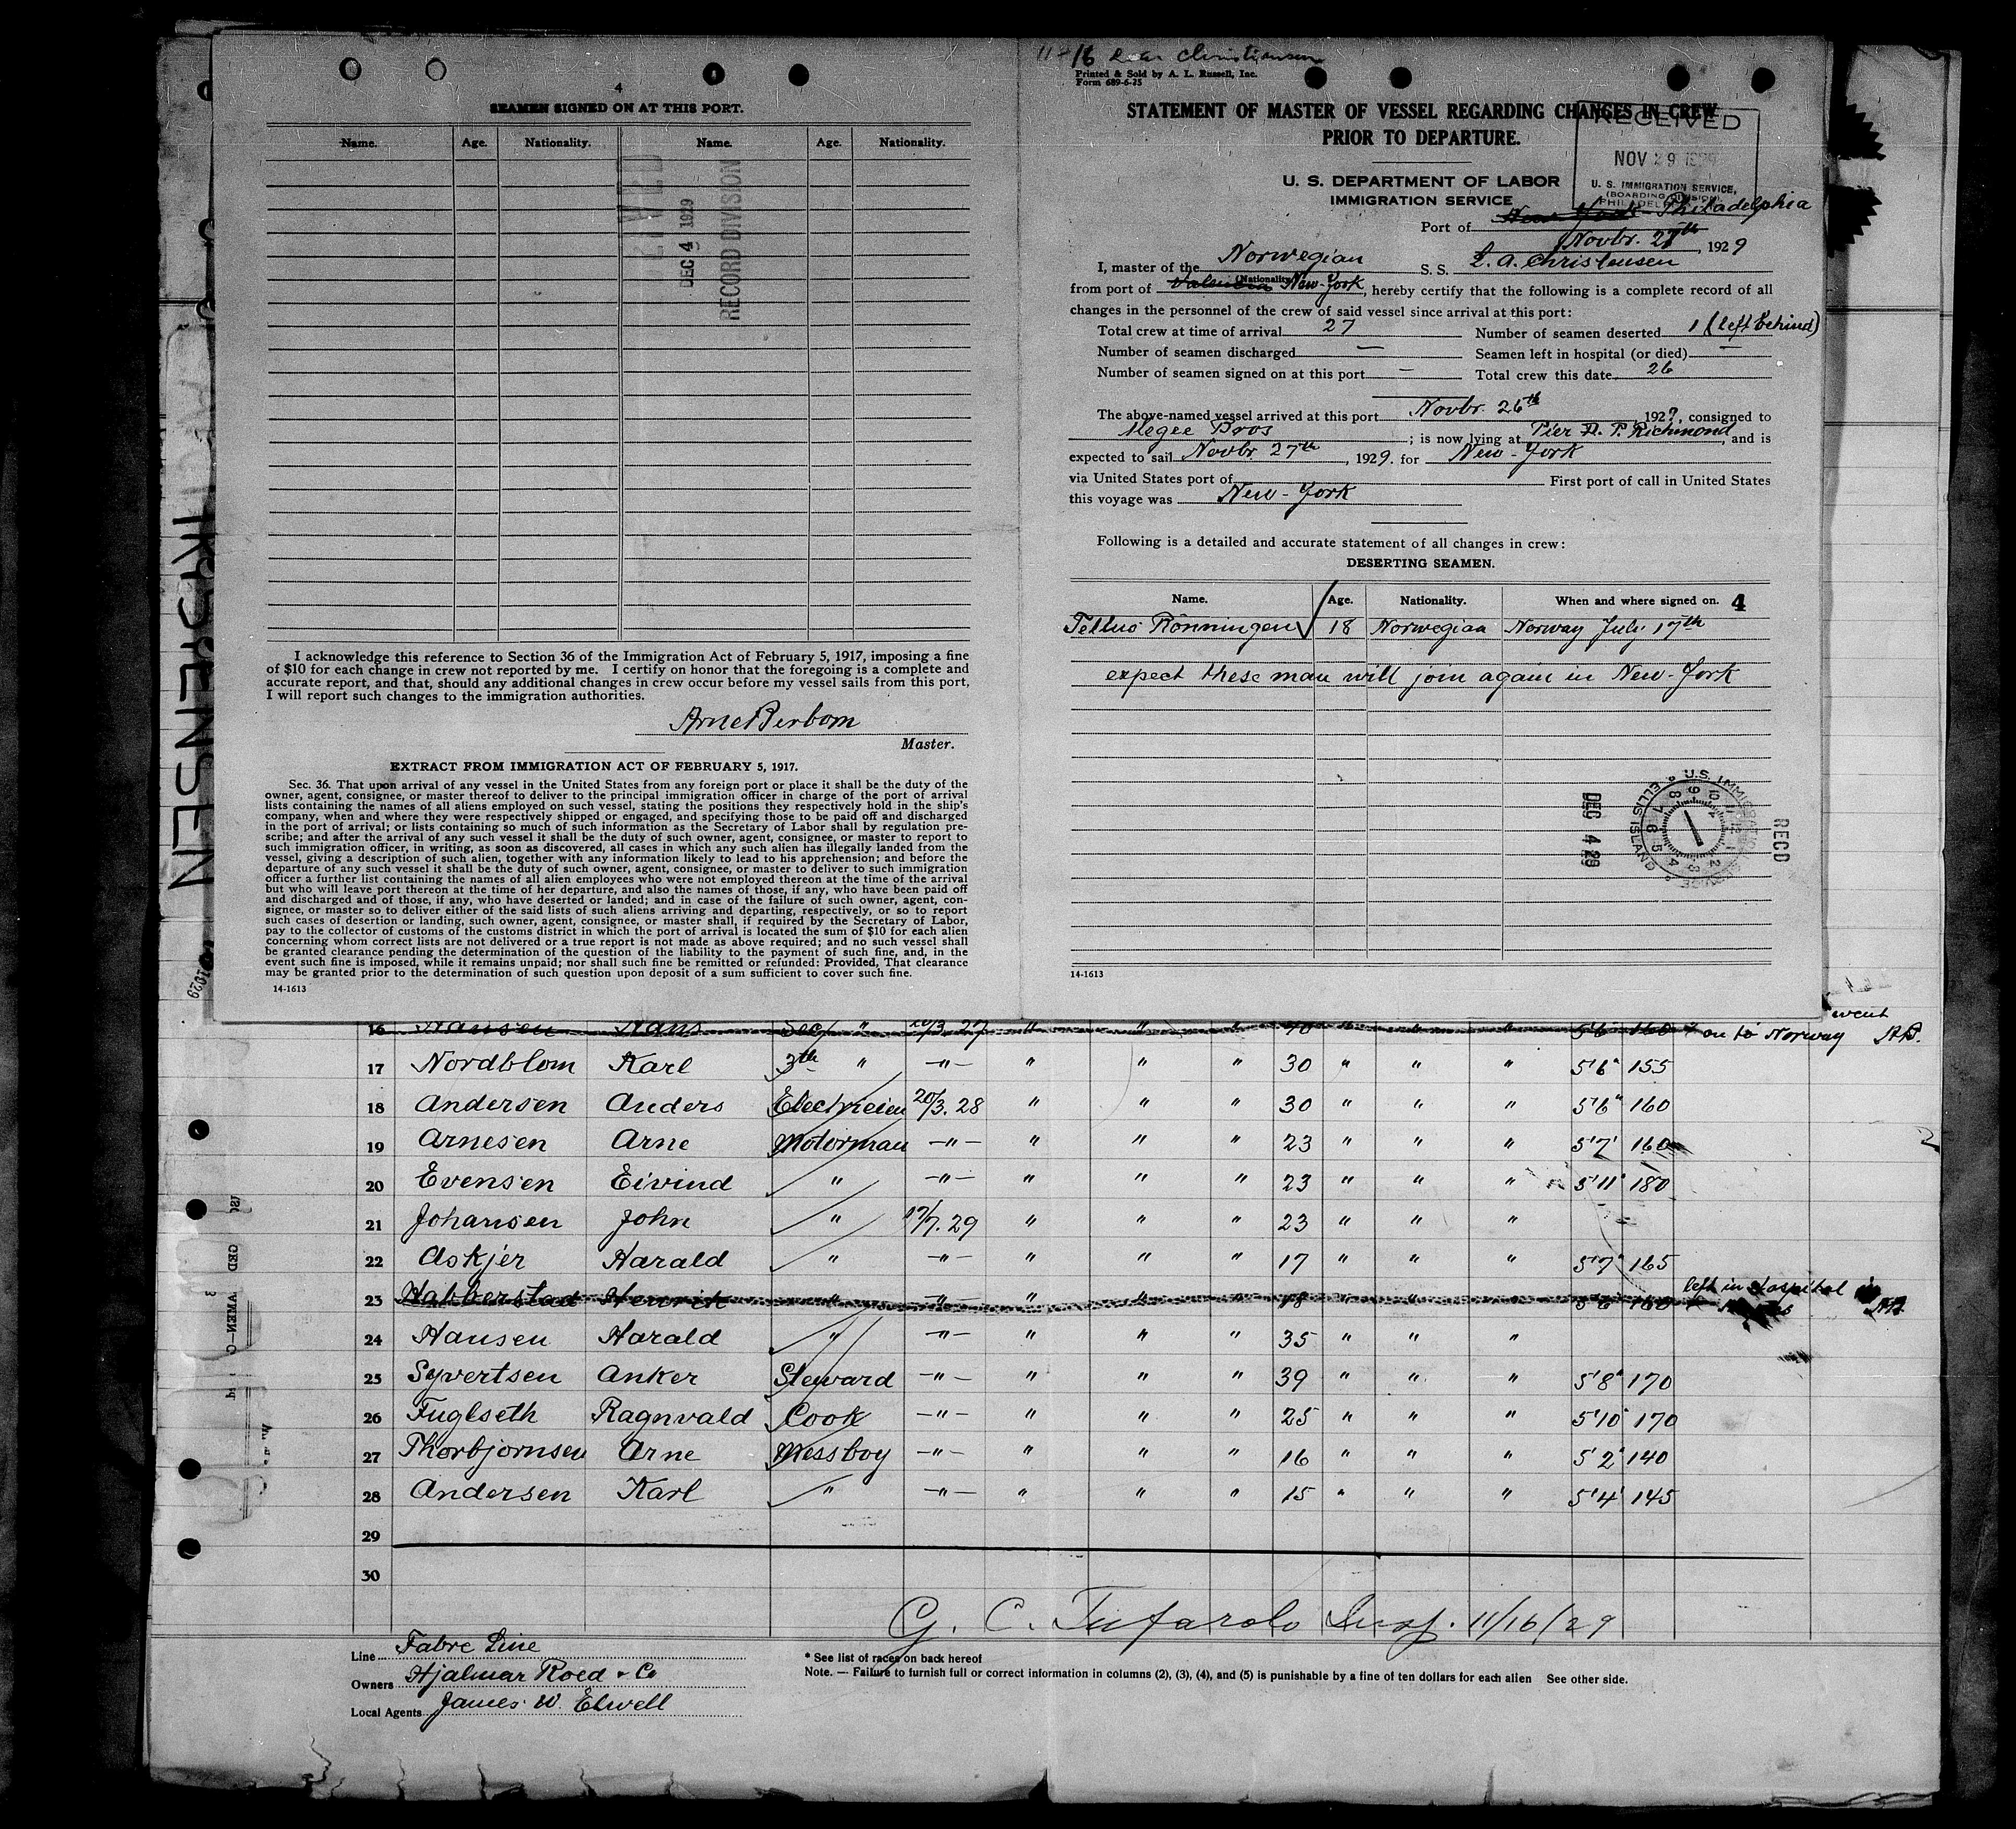 4
SEAMEN SIGNED ON AT THIS PORT.
Name. Age. Nationality. Name. Age. Nationality.
DEC 4 1929
RECORD DIVISION
I acknowledge this reference to Section 36 of the Immigration Act of February 5, 1917, imposing a fine
of $10 for each change in crew not reported by me. I certify on honor that the foregoing is a complete and
accurate report, and that, should any additional changes in crew occur before my vessel sails from this port,
I will report such changes to the immigration authorities.
Arne Berbom
Master.
EXTRACT FROM IMMIGRATION ACT OF FEBRUARY 5, 1917.
Sec. 36. That upon arrival of any vessel in the United States from any foreign port or place it shall be the duty of the
owner, agent, consignee, or master thereof to deliver to the principal immigration officer in charge of the port of arrival
lists containing the names of all aliens employed on such vessel, stating the positions they respectively hold in the ship's
company, when and where they were respectively shipped or engaged, and specifying those to be paid off and discharged
in the port of arrival; or lists containing so much of such information as the Secretary of Labor shall by regulation pre-
scribe; and after the arrival of any such vessel it shall be the duty of such owner, agent, consignee, or master to report to
such immigration officer, in writing, as soon as discovered, all cases in which any such alien has illegally landed from the
vessel, giving a description of such alien, together with any information likely to lead to his apprehension; and before the
departure of any such vessel it shall be the duty of such owner, agent, consignee, or master to deliver to such immigration
officer a further list containing the names of all alien employees who were not employed thereon at the time of the arrival
but who will leave port thereon at the time of her departure, and also the names of those, if any, who have been paid off
and discharged and of those, if any, who have deserted or landed; and in case of the failure of such owner, agent, con-
signee, or master so to deliver either of the said lists of such aliens arriving and departing, respectively, or so to report
such cases of desertion or landing, such owner, agent, consignee, or master shall, if required by the Secretary of Labor,
pay to the collector of customs of the customs district in which the port of arrival is located the sum of $10 for each alien
concerning whom correct lists are not delivered or a true report is not made as above required; and no such vessel shall
be granted clearance pending the determination of the question of the liability to the payment of such fine, and, in the
event such fine is imposed, while it remains unpaid; nor shall such fine be remitted or refunded: Provided, That clearance
may be granted prior to the determination of such question upon deposit of a sum sufficient to cover such fine.
14-1613
11-16 Christiansen
Printed & Sold by A. L. Russell, Inc.
Form 689-6-25
STATEMENT OF MASTER OF VESSEL REGARDING CHANGES IN CREW
PRIOR TO DEPARTURE.
RECEIVED
NOV 29 1929
U. S. IMMIGRATION SERVICE,
(BOARDING DIVISION)
PHILADELPHIA
U. S. DEPARTMENT OF LABOR
IMMIGRATION SERVICE
Port of New York Philadelphia
Novbr. 27th, 1929
I, master of the Norwegian S. S. L. A. Christensen
(Nationality)
from port of Valencia New-York, hereby certify that the following is a complete record of all
changes in the personnel of the crew of said vessel since arrival at this port:
Total crew at time of arrival 27 Number of seamen deserted 1 (left behind)
Number of seamen discharged — Seamen left in hospital (or died) —
Number of seamen signed on at this port — Total crew this date 26
The above-named vessel arrived at this port Novbr. 26th, 1929, consigned to
Megee Bros; is now lying at Pier D. P. Richmond, and is
expected to sail Novbr. 27th, 1929. for New-York
via United States port of First port of call in United States
this voyage was New-York
Following is a detailed and accurate statement of all changes in crew:
DESERTING SEAMEN.
Name. Age. Nationality. When and where signed on. 4
Tellus Rönningen 18 Norwegian Norway July 17th
expect these man will join again in New-York
U.S. IMMIGRATION SERVICE ELLIS ISLAND
DEC 4 29
RECD
14-1613
16 Hansen Hans Sec " 20/3.27 " " " 40 " " " 5'6 160 went on to Norway
17 Nordblom Karl 3th " -"- " " " 30 " " " 5'6" 155
18 Andersen Anders Electricien 20/3.28 " " " 30 " " " 5'6" 160
19 Arnesen Arne Motorman -"- " " " 23 " " " 5'7' 160
20 Evensen Eivind " -"- " " " 23 " " " 5'11" 180
21 Johansen John " 17/7.29 " " " 23 " " "
22 Askjer Harald " -"- " " " 17 " " " 5'7" 165
23 Habberstad Henrik " -"- " " " 18 " " " 5'6 160 left in Hospital in
24 Hansen Harald " -"- " " " 35 " " "
25 Syvertsen Anker Steward -"- " " " 39 " " " 5'8" 170
26 Fuglseth Ragnvald Cook -"- " " " 25 " " " 5'10" 170
27 Thorbjornsen Arne Messboy -"- " " " 16 " " " 5'2" 140
28 Andersen Karl " -"- " " " 15 " " " 5'4' 145
29
30
G. C. Tufarolo Insp. 11/16/29
Line Fabre Line
Owners Hjalmar Roed & Co
Local Agents James W. Elwell
* See list of races on back hereof
Note. — Failure to furnish full or correct information in columns (2), (3), (4), and (5) is punishable by a fine of ten dollars for each alien See other side.